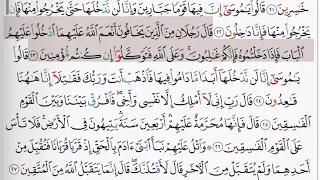 خَٰسِرِينَ ٢١ قَالُوا۟ يَٰمُوسَىٰٓ إِنَّ فِيهَا قَوْمًا جَبَّارِينَ وَإِنَّا لَن نَّدْخُلَهَا حَتَّىٰ يَخْرُجُوا۟ مِنْهَا فَإِن
يَخْرُجُوا۟ مِنْهَا فَإِنَّا دَٰخِلُونَ ٢٢ قَالَ رَجُلَانِ مِنَ ٱلَّذِينَ يَخَافُونَ أَنْعَمَ ٱللَّهُ عَلَيْهِمَا ٱدْخُلُوا۟ عَلَيْهِمُ
ٱلْبَابَ فَإِذَا دَخَلْتُمُوهُ فَإِنَّكُمْ غَٰلِبُونَ ۚ وَعَلَى ٱللَّهِ فَتَوَكَّلُوٓا۟ إِن كُنتُم مُّؤْمِنِينَ ٢٣ قَالُوا۟
يَٰمُوسَىٰٓ إِنَّا لَن نَّدْخُلَهَآ أَبَدًا مَّا دَامُوا۟ فِيهَا ۖ فَٱذْهَبْ أَنتَ وَرَبُّكَ فَقَٰتِلَآ إِنَّا هَٰهُنَا
قَٰعِدُونَ ٢٤ قَالَ رَبِّ إِنِّى لَآ أَمْلِكُ إِلَّا نَفْسِى وَأَخِى ۖ فَٱفْرُقْ بَيْنَنَا وَبَيْنَ ٱلْقَوْمِ
ٱلْفَٰسِقِينَ ٢٥ قَالَ فَإِنَّهَا مُحَرَّمَةٌ عَلَيْهِمْ ۛ أَرْبَعِينَ سَنَةً ۛ يَتِيهُونَ فِى ٱلْأَرْضِ ۚ فَلَا تَأْسَ
عَلَى ٱلْقَوْمِ ٱلْفَٰسِقِينَ ٢٦ وَٱتْلُ عَلَيْهِمْ نَبَأَ ٱبْنَىْ ءَادَمَ بِٱلْحَقِّ إِذْ قَرَّبَا قُرْبَانًا فَتُقُبِّلَ مِنْ
أَحَدِهِمَا وَلَمْ يُتَقَبَّلْ مِنَ ٱلْءَاخَرِ قَالَ لَأَقْتُلَنَّكَ ۖ قَالَ إِنَّمَا يَتَقَبَّلُ ٱللَّهُ مِنَ ٱلْمُتَّقِينَ ٢٧